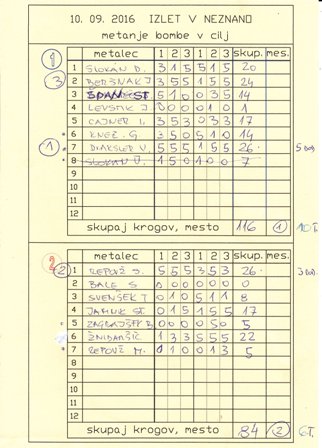 10. 09. 2016 IZLET V NEZNANO
metanje bombe v cilj
1
metalec 1 2 3 1 2 3 skup. mes.
1 SLOKAN D. 3 1 5 5 1 5 20
3 2 BERSNAK J 3 5 5 1 5 5 24
3 ŠPAN ST 5 1 0 0 3 5 14
4 LEVSTIK J. 0 0 0 0 1 0 1
5 CAJNER I. 3 5 3 0 3 3 17
6 KNEZ G. 3 5 0 5 1 0 14
1 7 DRAKSLER V. 5 5 5 1 5 5 26
8 SLOKAN U. 1 5 0 1 0 0 7
9
10
11
12
skupaj krogov, mesto 116 1
2
metalec 1 2 3 1 2 3 skup. mes.
2 1 REPOVŽ J. 5 5 5 3 5 3 26
2 BALE S 0 0 0 0 0 0 0
3 SVENŠEK T 0 1 0 5 1 1 8
4 ST 0 1 5 1 5 5 17
5 0 0 0 0 5 0 5
6 ŽNIDARŠIČ 1 3 3 5 5 5 22
7 REPOVŽ M. 0 1 0 0 1 3 5
8
9
10
11
12
skupaj krogov, mesto 84 2